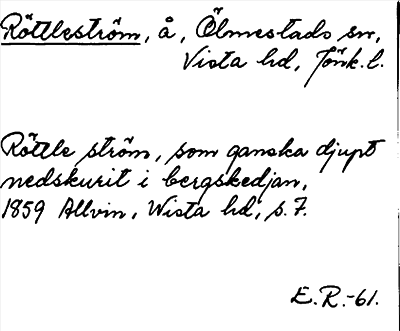 Röttleström, å, Ölmestads sn,
Vista hd, Jönk.l.
Röttle ström, som ganska djupt
nedskurit i bergskedjan,
1859 Allvin, Wista hd, s.7.
E.R.-61.